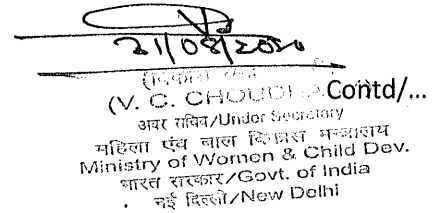 21/08/2020
(V. C. CHOUDHA Contd/...
अवर सचिव/Under Secretary
महिला एंव बाल विकास मन्त्रालय
Ministry of Women & Child Dev.
भारत सरकार/Govt. of India
नई दिल्ली/New Delhi